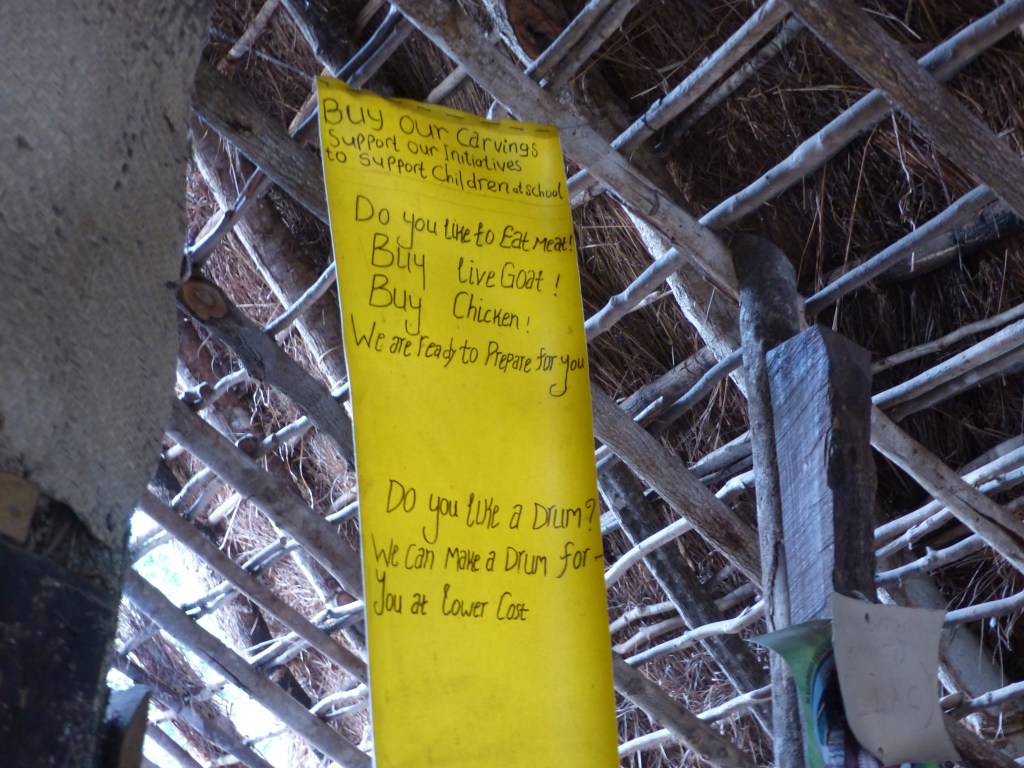 Buy Our Carvings
Support Our Initiatives
to Support Children at school
Do you like to Eat Meat!
Buy live Goat!
Buy Chicken!
We are ready to Prepare for you
Do you like a Drum?
We Can Make a Drum for -
You at lower Cost